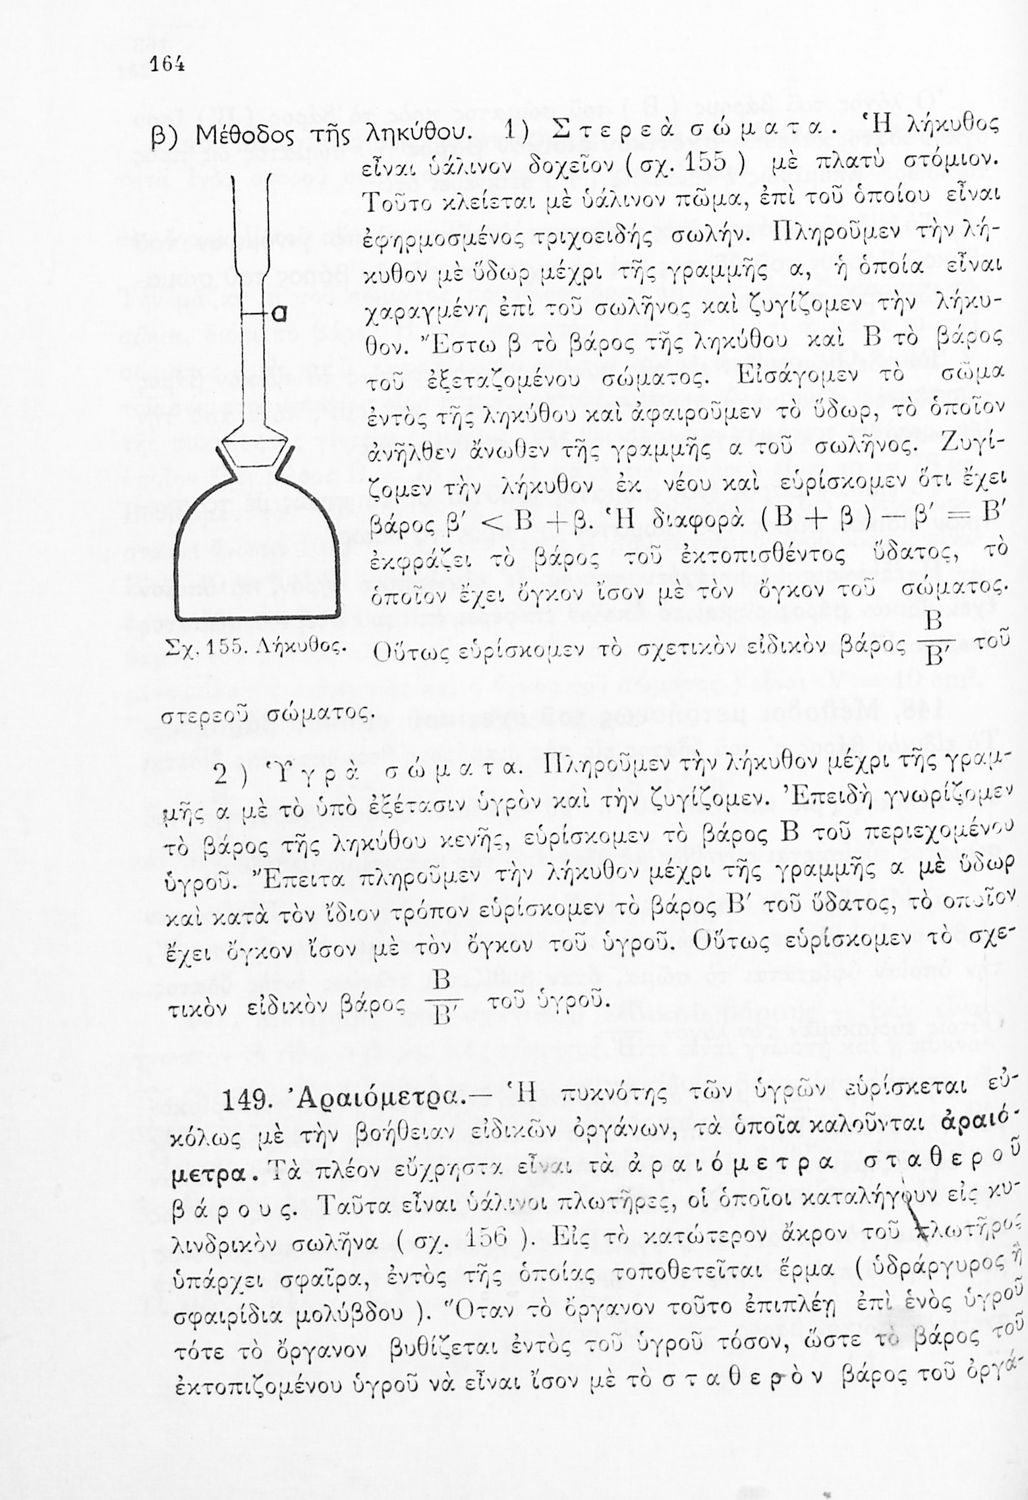 164
β) Μέθοδος τῆς ληκύθου. 1) Στερεὰ σώματα. Ἡ λήκυθος
εἶναι ὑάλινον δοχεῖον (σχ. 155) μὲ πλατὺ στόμιον.
Τοῦτο κλείεται μὲ ὑάλινον πῶμα, ἐπὶ τοῦ ὁποίου εἶναι
ἐφηρμοσμένος τριχοειδὴς σωλήν. Πληροῦμεν τὴν λή-
κυθον μὲ ὕδωρ μέχρι τῆς γραμμῆς α, ἡ ὁποία εἶναι
χαραγμένη ἐπὶ τοῦ σωλῆνος καὶ ζυγίζομεν τὴν λήκυ-
θον. Ἔστω β τὸ βάρος τῆς ληκύθου καὶ Β τὸ βάρος
τοῦ ἐξεταζομένου σώματος. Εἰσάγομεν τὸ σῶμα
ἐντὸς τῆς ληκύθου καὶ ἀφαιροῦμεν τὸ ὕδωρ, τὸ ὁποῖον
ἀνῆλθεν ἄνωθεν τῆς γραμμῆς α τοῦ σωλῆνος. Ζυγί-
ζομεν τὴν λήκυθον ἐκ νέου καὶ εὑρίσκομεν ὅτι ἔχει
βάρος β′ < Β + β. Ἡ διαφορὰ (Β + β) — β′ = Β′
ἐκφράζει τὸ βάρος τοῦ ἐκτοπισθέντος ὕδατος, τὸ
ὁποῖον ἔχει ὄγκον ἴσον μὲ τὸν ὄγκον τοῦ σώματος.
Οὕτως εὑρίσκομεν τὸ σχετικὸν εἰδικὸν βάρος Β/Β′ τοῦ
α
Σχ. 155. Λήκυθος.
στερεοῦ σώματος.
2) Ὑγρὰ σώματα. Πληροῦμεν τὴν λήκυθον μέχρι τῆς γραμ-
μῆς α μὲ τὸ ὑπὸ ἐξέτασιν ὑγρὸν καὶ τὴν ζυγίζομεν. Ἐπειδὴ γνωρίζομεν
τὸ βάρος τῆς ληκύθου κενῆς, εὑρίσκομεν τὸ βάρος Β τοῦ περιεχομένου
ὑγροῦ. Ἔπειτα πληροῦμεν τὴν λήκυθον μέχρι τῆς γραμμῆς α μὲ ὕδωρ
καὶ κατὰ τὸν ἴδιον τρόπον εὑρίσκομεν τὸ βάρος Β′ τοῦ ὕδατος, τὸ ὁποῖον
ἔχει ὄγκον ἴσον μὲ τὸν ὄγκον τοῦ ὑγροῦ. Οὕτως εὑρίσκομεν τὸ σχε-
τικὸν εἰδικὸν βάρος Β/Β′ τοῦ ὑγροῦ.
149. Ἀραιόμετρα.— Ἡ πυκνότης τῶν ὑγρῶν εὑρίσκεται εὐ-
κόλως μὲ τὴν βοήθειαν εἰδικῶν ὀργάνων, τὰ ὁποῖα καλοῦνται ἀραιό-
μετρα. Τὰ πλέον εὔχρηστα εἶναι τὰ ἀραιόμετρα σταθεροῦ
βάρους. Ταῦτα εἶναι ὑάλινοι πλωτῆρες, οἱ ὁποῖοι καταλήγουν εἰς κυ-
λινδρικὸν σωλῆνα (σχ. 156). Εἰς τὸ κατώτερον ἄκρον τοῦ πλωτῆρος
ὑπάρχει σφαῖρα, ἐντὸς τῆς ὁποίας τοποθετεῖται ἕρμα (ὑδράργυρος ἢ
σφαιρίδια μολύβδου). Ὅταν τὸ ὄργανον τοῦτο ἐπιπλέῃ ἐπὶ ἑνὸς ὑγροῦ
τότε τὸ ὄργανον βυθίζεται ἐντὸς τοῦ ὑγροῦ τόσον, ὥστε τὸ βάρος τοῦ
ἐκτοπιζομένου ὑγροῦ νὰ εἶναι ἴσον μὲ τὸ σταθερὸν βάρος τοῦ ὀργά-